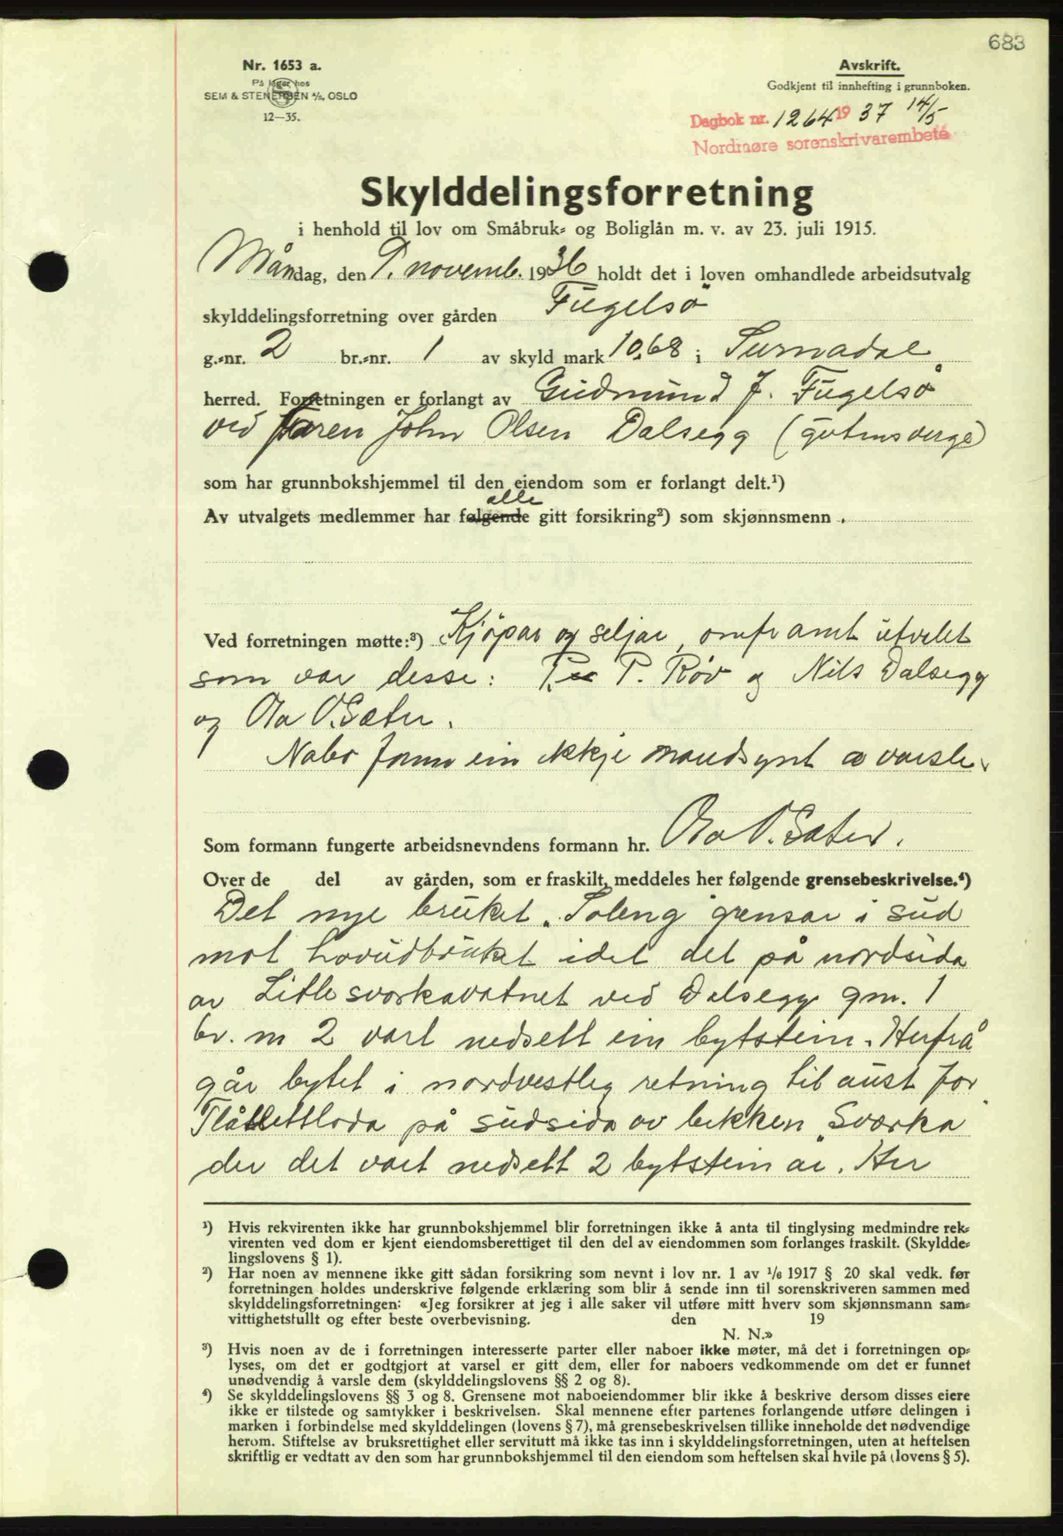 683
Nr. 1653 a.
På lager hos
SEM & STENERSEN A/S, OSLO
12—35.
Avskrift.
Godkjent til innhefting i grunnboken.
Dagbok nr. 1264 19 37 14/5
Nordmøre sorenskrivarembete
Skylddelingsforretning
i henhold til lov om Småbruk- og Boliglån m. v. av 23. juli 1915.
Måndag, den 9. novemb. 1936 holdt det i loven omhandlede arbeidsutvalg
skylddelingsforretning over gården Fugelsö
g.-nr. 2 br.-nr. 1 av skyld mark 10,68 i Surnadal
herred. Forretningen er forlangt av Gudmund J. Fugelsö
ved faren John Olsen Dalsegg (
som har grunnbokshjemmel til den eiendom som er forlangt delt.¹)
alle
Av utvalgets medlemmer har følgende gitt forsikring²) som skjønnsmenn .
Ved forretningen møtte:³) Kjöpar og seljar, omframt utvalet
som var desse: P. Røv og Nils Dalsegg
og Ola O. Sæter.
Nabo ein ikkje naudsynt å varsle.
Som formann fungerte arbeidsnevndens formann hr. Ola O. Sæter.
Over de del av gården, som er fraskilt, meddeles her følgende grensebeskrivelse.⁴)
Det nye bruket „Soleng" grensar i sud
mot hovudbruket idet det på nordsida
av Litlesvorkavatnet ved Dalsegg gnr. 1
br. nr 2 vart nedsett ein bytstein. Herfrå
går bytet i nordvestleg retning til aust for
på sudsida av bekken „Svorka"
der det vart nedsett 2 bytsteinar. Her
¹) Hvis rekvirenten ikke har grunnbokshjemmel blir forretningen ikke å anta til tinglysing medmindre rek-
virenten ved dom er kjent eiendomsberettiget til den del av eiendommen som forlanges fraskilt. (Skyldde-
lingslovens § 1).
²) Har noen av mennene ikke gitt sådan forsikring som nevnt i lov nr. 1 av ¹/₆ 1917 § 20 skal vedk. før
forretningen holdes underskrive følgende erklæring som blir å sende inn til sorenskriveren sammen med
skylddelingsforretningen: «Jeg forsikrer at jeg i alle saker vil utføre mitt hverv som skjønnsmann sam-
vittighetsfullt og efter beste overbevisning. den 19
N. N.»
³) Hvis noen av de i forretningen interesserte parter eller naboer ikke møter, må det i forretningen op-
lyses, om det er godtgjort at varsel er gitt dem, eller for naboers vedkommende om det er funnet
unødvendig å varsle dem (skylddelingslovens §§ 2 og 8).
⁴) Se skylddelingslovens §§ 3 og 8. Grensene mot naboeiendommer blir ikke å beskrive dersom disses eiere
ikke er tilstede og samtykker i beskrivelsen. Skal mennene efter partenes forlangende utføre delingen i
marken i forbindelse med skylddelingen (lovens § 7), må grensebeskrivelsen tillike inneholde det nødvendige
herom. Stiftelse av bruksrettighet eller servitutt må ikke tas inn i skylddelingsforretningen, uten at heftelsen
skriftlig er vedtatt av den som har grunnbokshjemmel til den eiendom som heftelsen skal hvile på (lovens § 5).